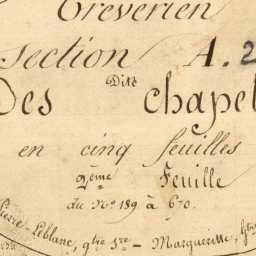 Tréverien
Section A. 2
Dite
Des chapel
en cinq feuilles
2ème Feuille
du No 189 à 670.
Pierre-Leblanc, qtie Sre - Marqueritte,